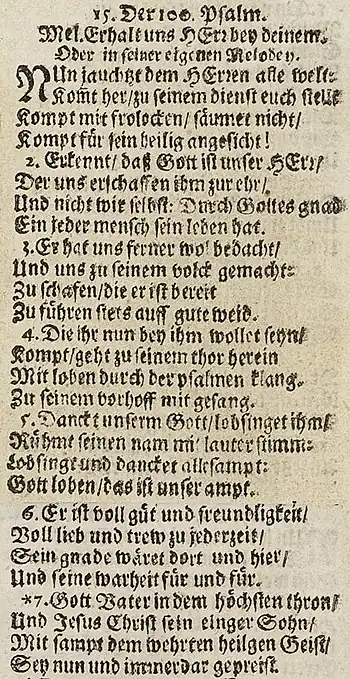 15. Der 100. Psalm.
Mel. Erhalt uns HErr bey deinem.
Oder in seiner eigenen Melodey.
NUn jauchtzt dem HErren alle welt:
Kom̃t her/ zu seinem dienst euch stellt
Kompt mit frolocken/ säumet nicht/
Kompt für sein heilig angesicht!
2. Erkennt/ daß Gott ist unser HErr/
Der uns erschaffen ihm zur ehr/
Und nicht wir selbst: Durch Gottes gnad
Ein jeder mensch sein leben hat.
3. Er hat uns ferner wol bedacht/
Und uns zu seinem volck gemacht:
Zu schafen/ die er ist bereit
Zu führen stets auff gute weid.
4. Die ihr nun bey ihm wollet seyn/
Kompt/ geht zu seinem thor herein
Mit loben durch der psalmen klang.
Zu seinem vorhoff mit gesang.
5. Danckt unserm Gott/ lobsinget ihm/
Rühmt seinen nam mit lauter stimm:
Lobsingt und dancket allesampt:
Gott loben/ das ist unser ampt.
6. Er ist voll güt und freundligkeit/
Voll lieb und trew zu jederzeit/
Sein gnade wäret dort und hier/
Und seine warheit für und für.
*7. Gott Vater in dem höchsten thron/
Und Jesus Christ sein einger Sohn/
Mit sampt dem wehrten heilgen Geist/
Sey nun und immerdar gepreist.